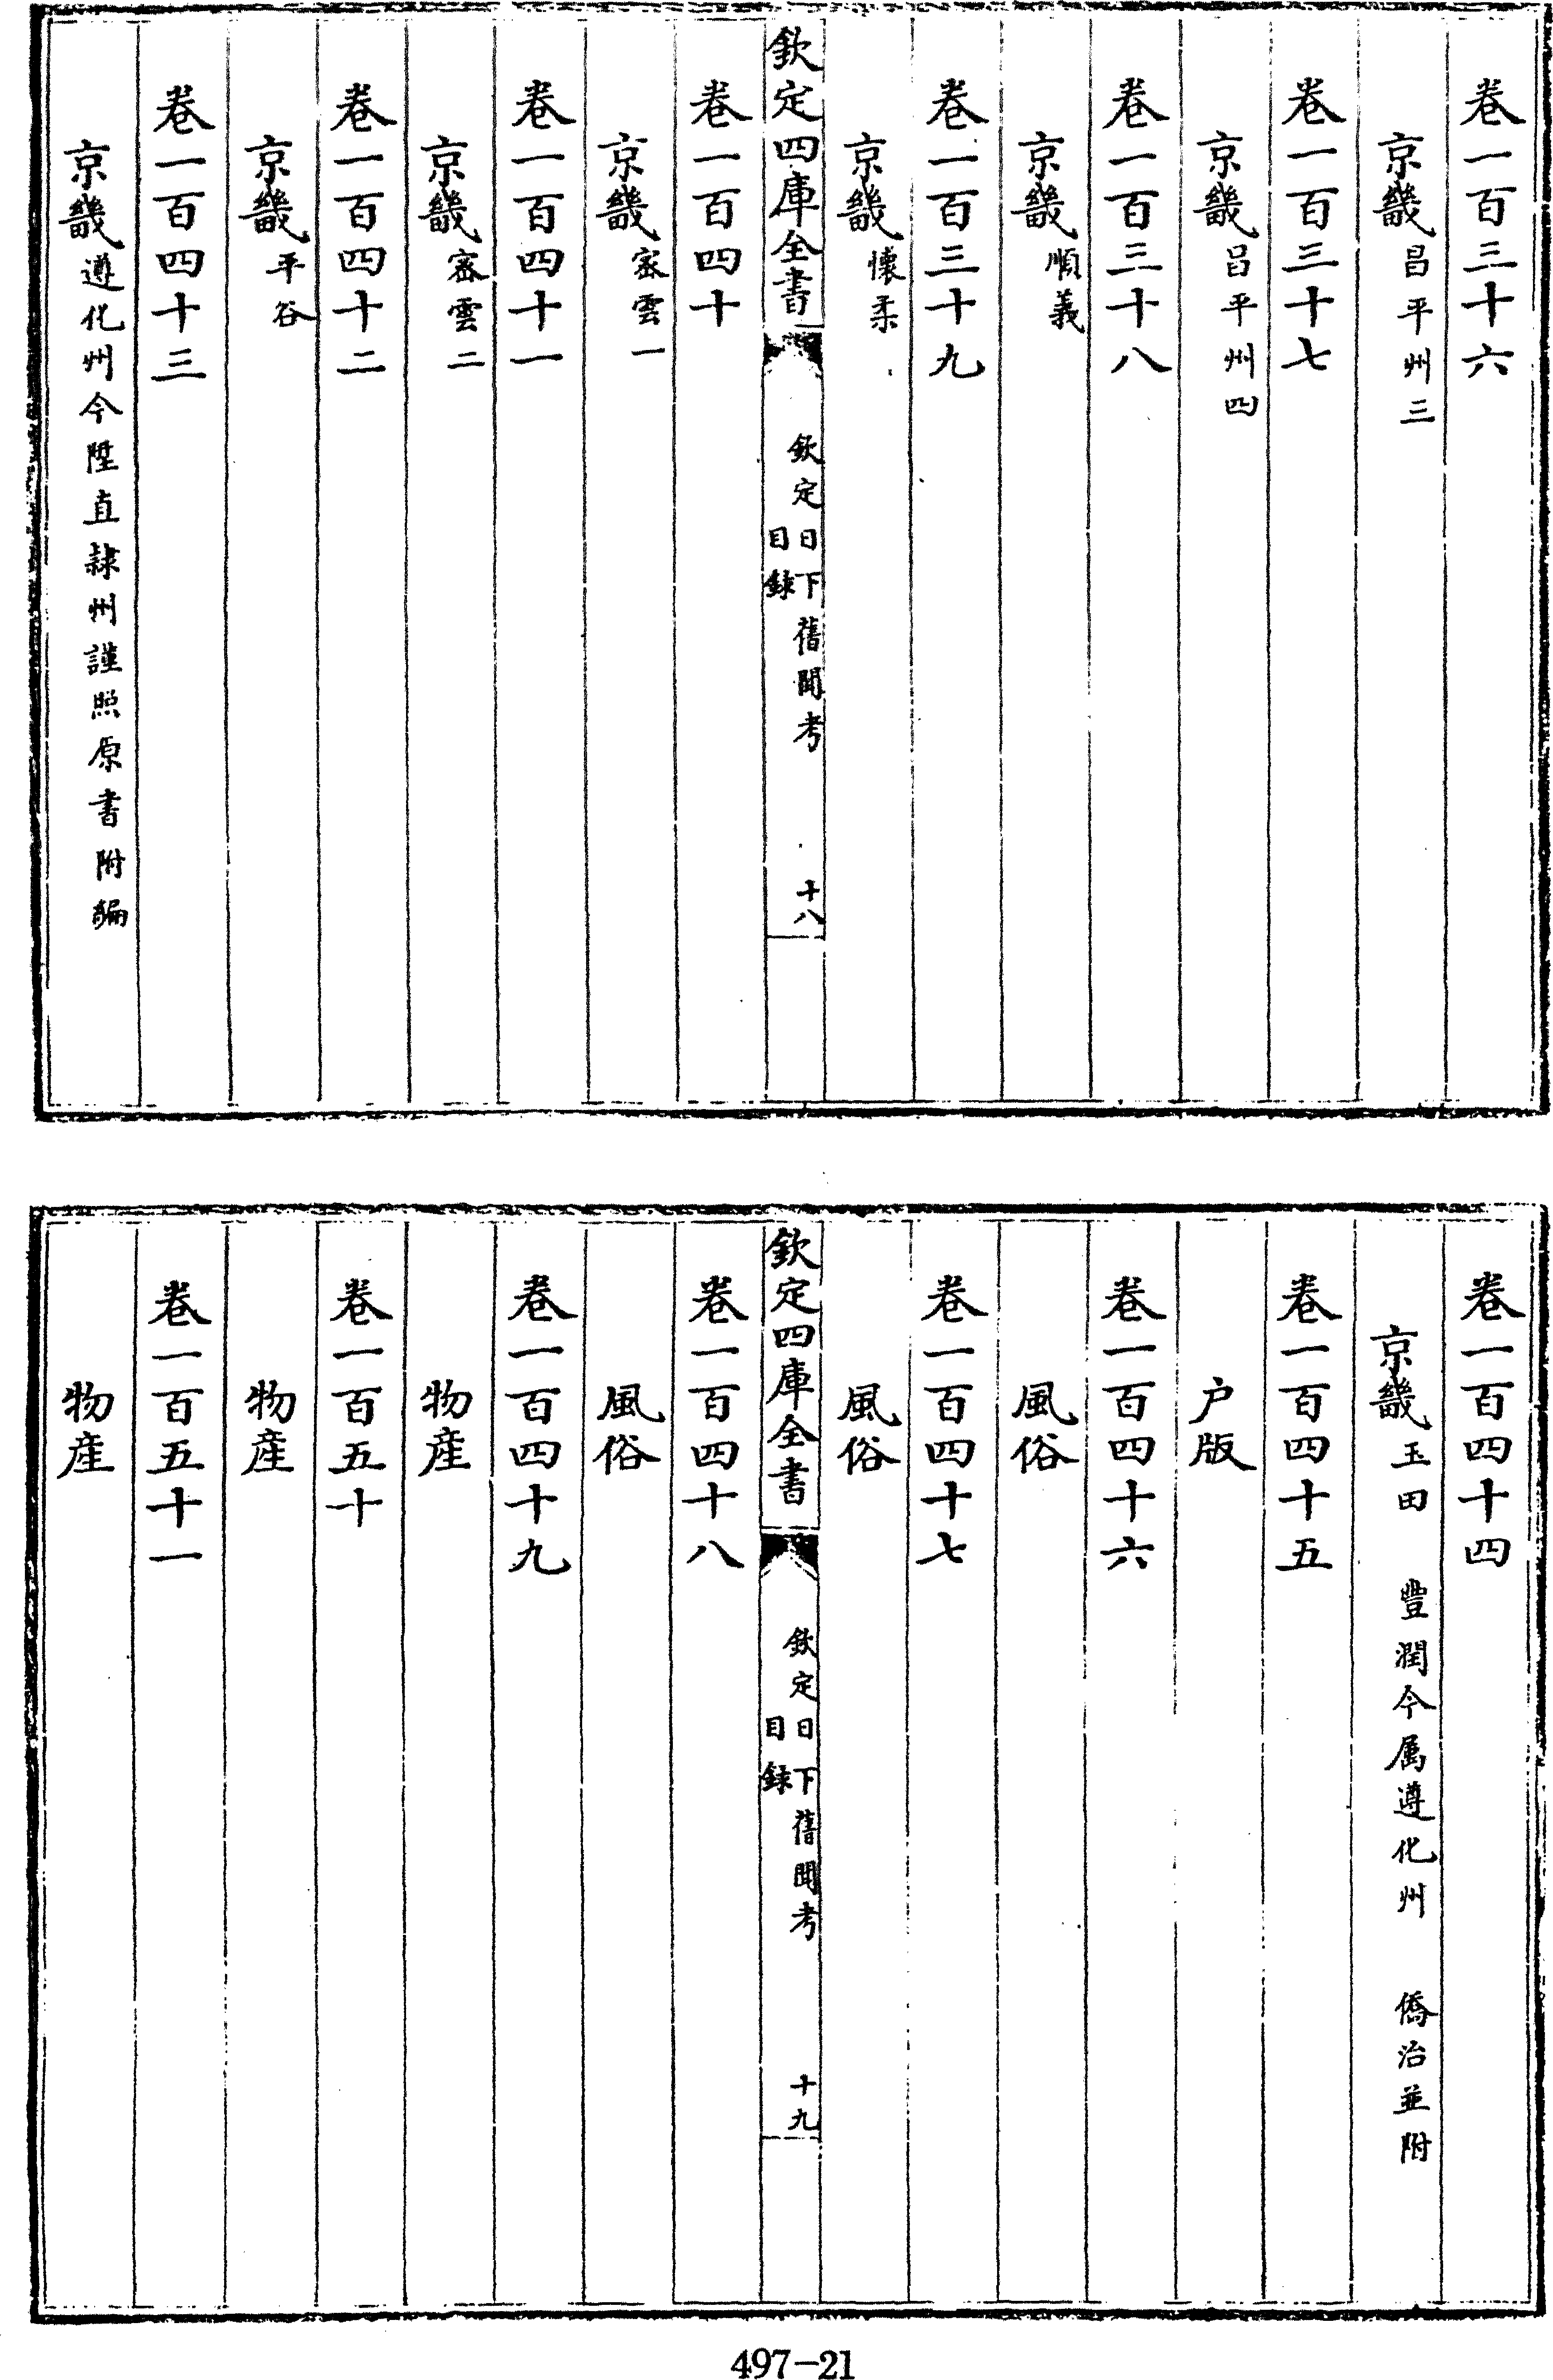 卷一百三十六
京畿昌平州三
卷一百三十七
京畿昌平州四
卷一百三十八
京畿順義
卷一百三十九
京畿懷柔
欽定四庫全書
欽定日下舊聞考
目録
十八
卷一百四十
京畿密雲一
卷一百四十一
京畿密雲二
卷一百四十二
京畿平谷
卷一百四十三
京畿遵化州今陞直隸州謹照原書附編
卷一百四十四
京畿玉田 豐潤今屬遵化州 僑治並附
卷一百四十五
户版
卷一百四十六
風俗
卷一百四十七
風俗
欽定四庫全書
欽定日下舊聞考
目録
十九
卷一百四十八
風俗
卷一百四十九
物産
卷一百五十
物産
卷一百五十一
物産
497-21